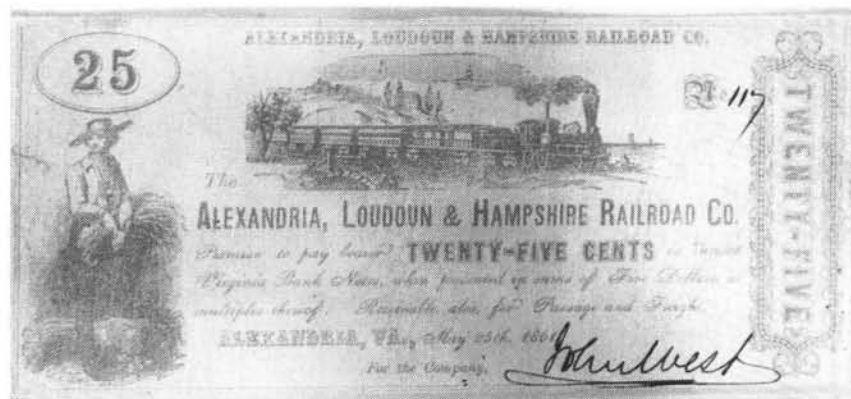 ALEXANDRIA, LOUDOUN & HAMPSHIRE RAILROAD CO.
25
No 117
TWENTY-FIVE
The
ALEXANDRIA, LOUDOUN & HAMPSHIRE RAILROAD CO.
Promise to pay bearer TWENTY-FIVE CENTS in
Virginia Bank Notes, when presented in sums of Five Dollars or
multiples thereof. Receivable, also, for Passage and Freight.
ALEXANDRIA, VA., May 25th, 1861
For the Company,
John West